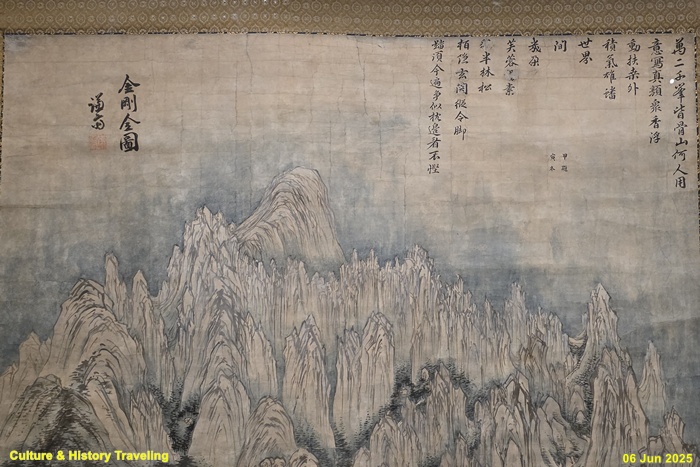 萬二千峯皆骨山何人用
意寫真顏衆香浮
動扶桑外
積氣雄蟠
世界
間
幾朶
芙蓉揚素
彩半林松
栢隱玄關縱令脚
踏須今遍爭似枕邊看不慳
甲題
寅冬
金剛全圖
謙齋
Culture & History Traveling
06 Jun 2025